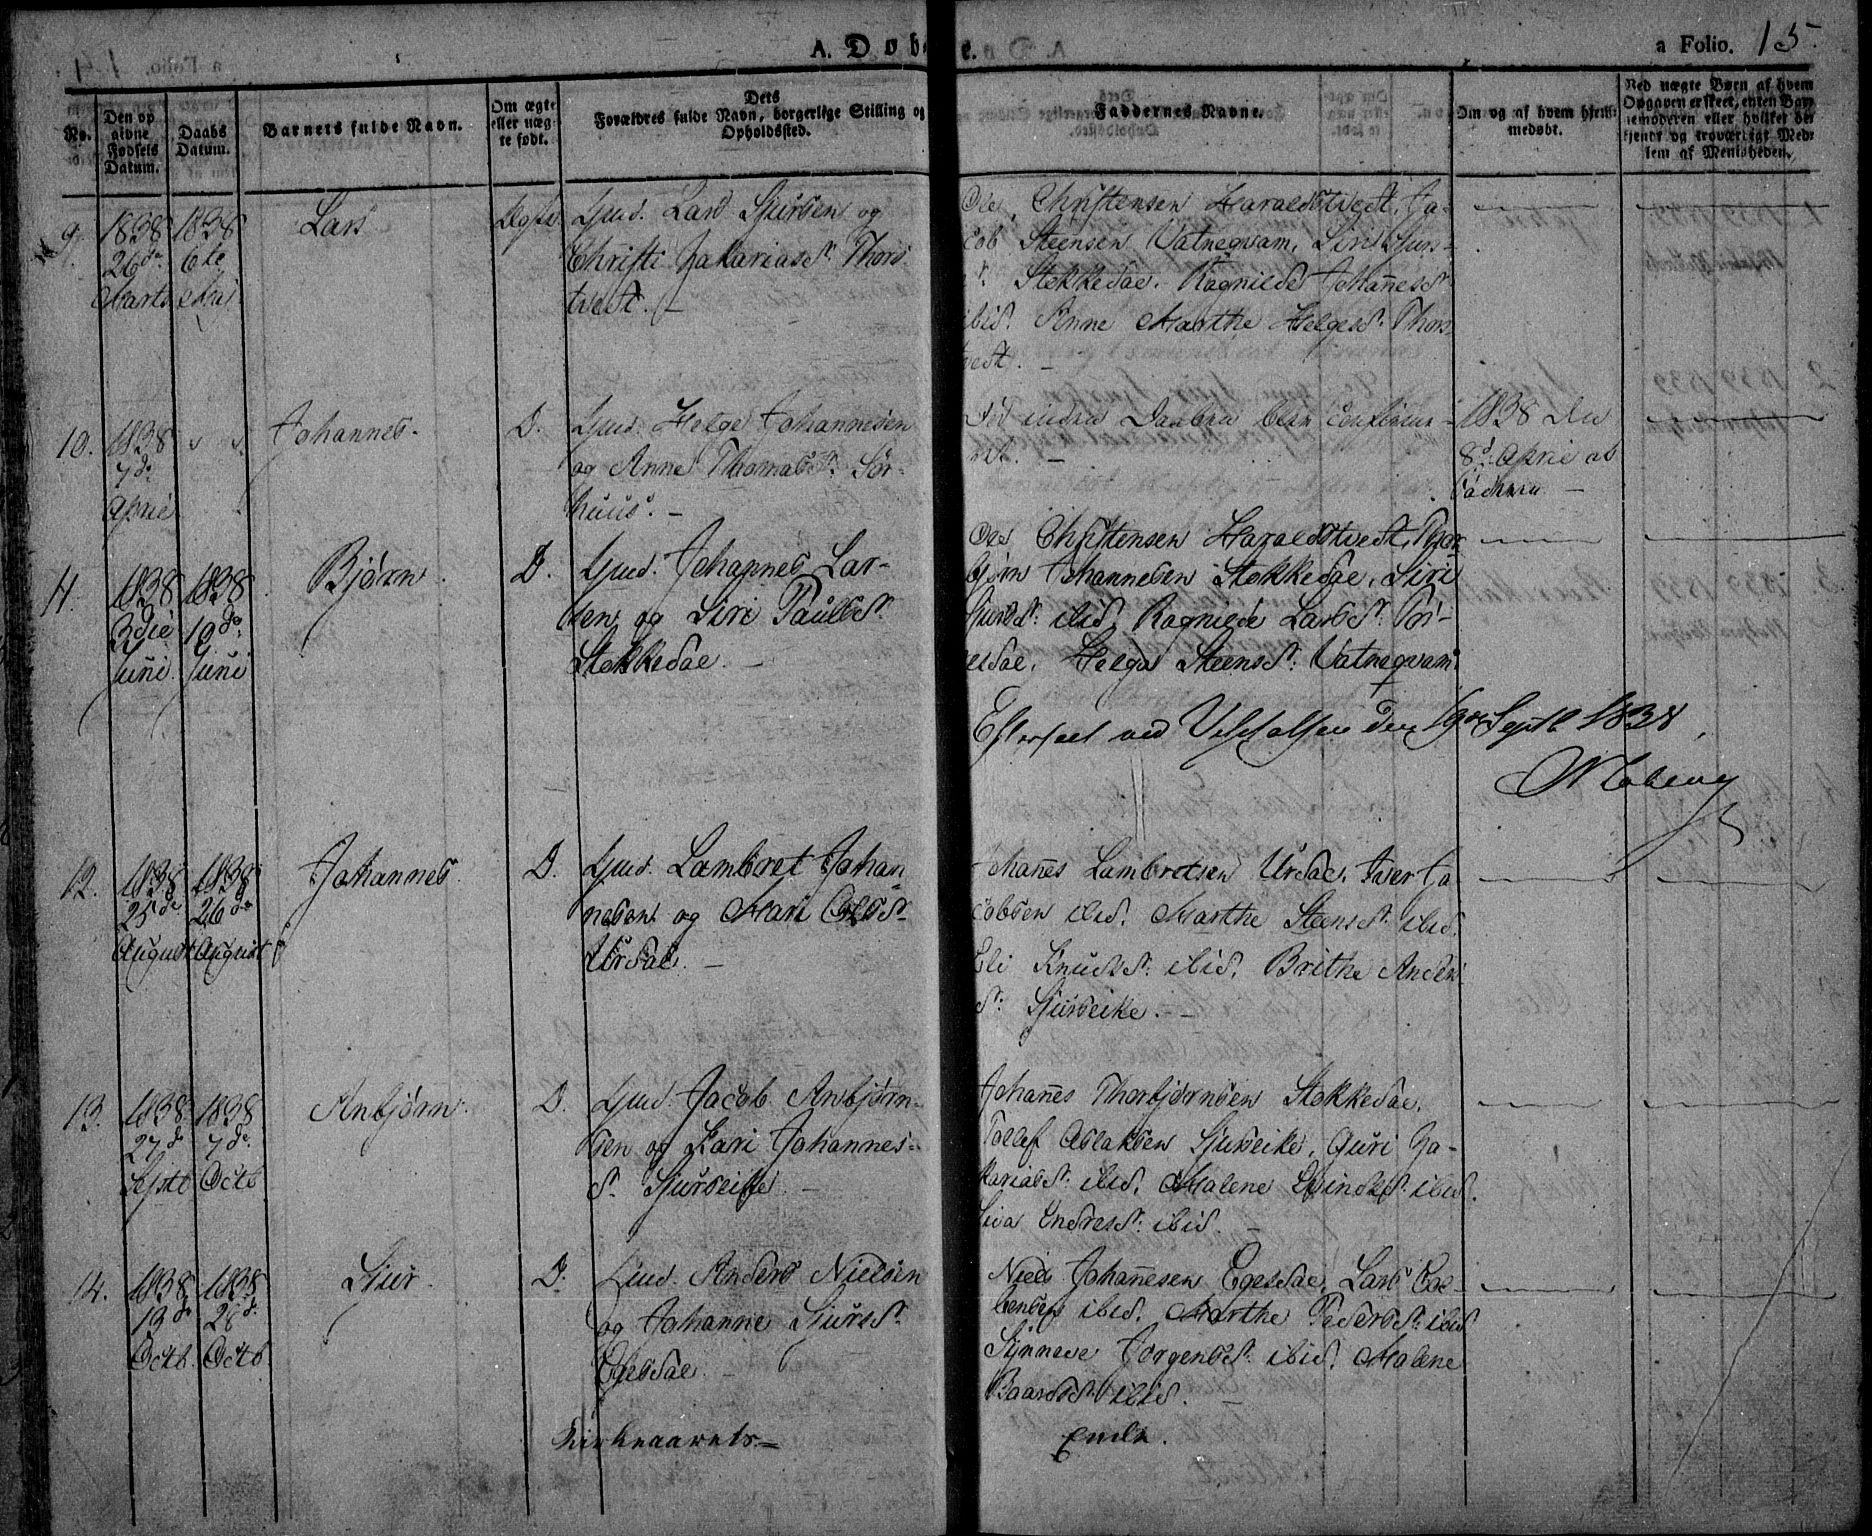 A. Døbte.
a Folio. 15.
No.
Den op
givne
Fødsels
Datum.
Daabs
Datum.
Barnets fulde Navn.
Om ægte
eller uæg-
te født.
Dets
Forældres fulde Navn, borgerlige Stilling og
Opholdssted.
Faddernes Navne.
Om og af hvem hjem-
medøbt.
Ved uægte Børn af hvem
Opgaven er skeet, enten Bar-
nemoderen eller hvilket be-
kjendt og troværdigt Med-
lem af Menigheden.
9.
1838
26de
Marts
1838
6te
Mai
Lars
Ægte
Gmd. Lars Sjursen og
Christi Zakariasd. Thors
tvedt. –
Ole Christensen Haraldstvedt, Ja-
cob Steensen Vatneqvam, Siri Sjurs-
d. Stokkedal. Ragnilde Johañesd.
ibid. Anne Marthe Helgesd. Thors
tvedt. –
10.
1838
7de
April
Johannes.
D.
Gmd. Helge Johannesen
og Anne Thomasd. Sør-
huus. –
1838 den
8d. April af
Faderen –
11.
1838
3die
Juni
1838
10de
Juni
Bjørn.
D.
Gmd. Johannes Lar-
sen og Siri Paulsd.
Stokkedal. –
Ole Christensen Haraldstvedt, Thor
bjørn Johannesen Stokkedal, Siri
Sjursd. ibid. Ragnilde Larsd.
Helga Steensd. Vatneqvam.
Efterseet ved Visitatsen den 19de Septb 1838.
12.
1838
25de
August
1838
26de
August
Johannes.
D.
Gmd. Lambret Johan
nesen og Mari Olsd.
Ursdal. –
Johañes Lambretsen Ursdal, Iver Ja
cobsen ibid. Marthe Steensd. ibid.
Eli Knudsd. ibid. Brithe Anders
d. Sjurseike. –
13.
1838
27de
Septb
1838
7de
Octb
Anbjørn.
D.
Gmd. Jacob Anbjørn-
sen og Kari Johannes-
d. Sjurseike. –
Johañes Thorbjørnsen Stokkedal,
Tollef Aslaksen Sjurseike, Guri Za-
kariasd. ibid. Malene Evindsd. ibid.
Siva Endresd. ibid. –
14.
1838
19de
Octb.
1838
28d.
Octb.
Sjur.
D.
Gmd. Anders Nielsen
og Johanne Sjursd.
Egesdal. –
Niels Johañesen Egesdal, Lars
ibid. Marthe Pedersd. ibid
Synneve Jørgensd. ibid. Malene
Baardsd. ibid. –
Kirkeaarets –
Ende.